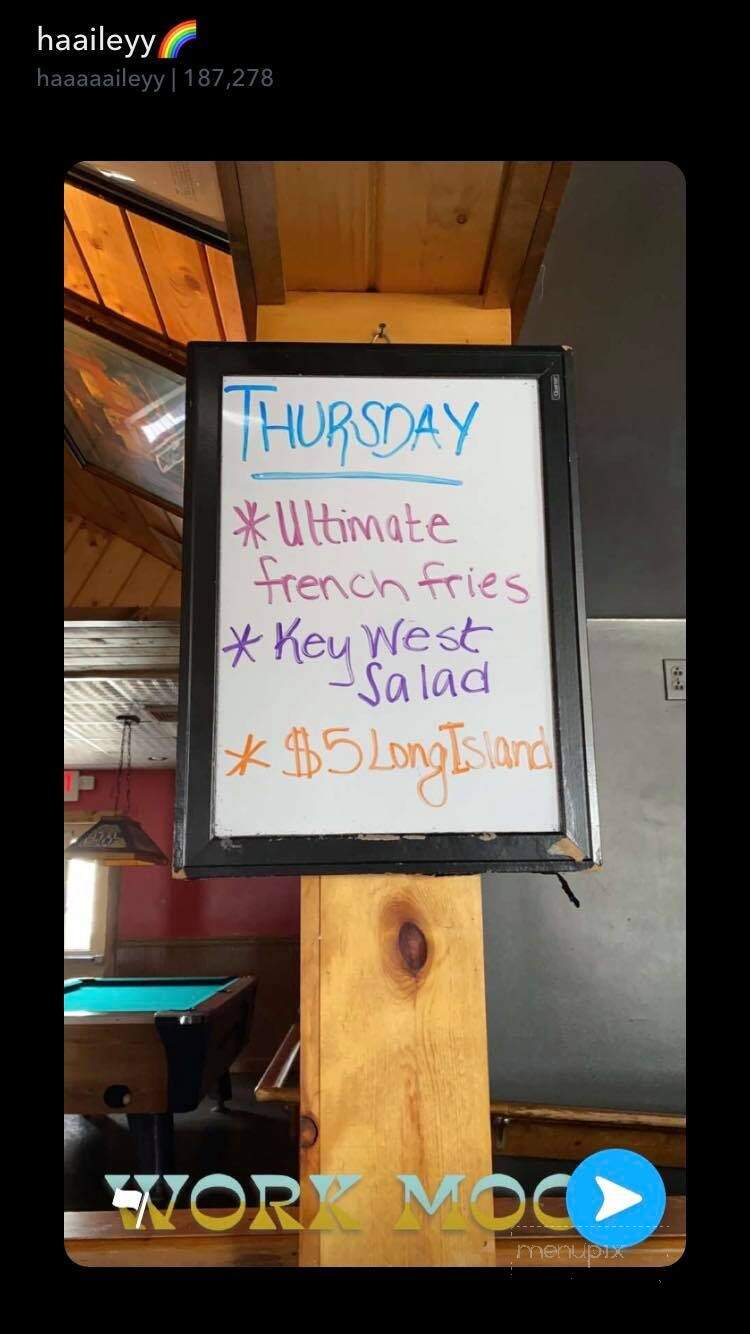 haaileyy🌈
haaaaaileyy | 187,278
THURSDAY
* Ultimate
french fries
* Key West
Salad
* $5 Long Island
WORK MOO
menupix